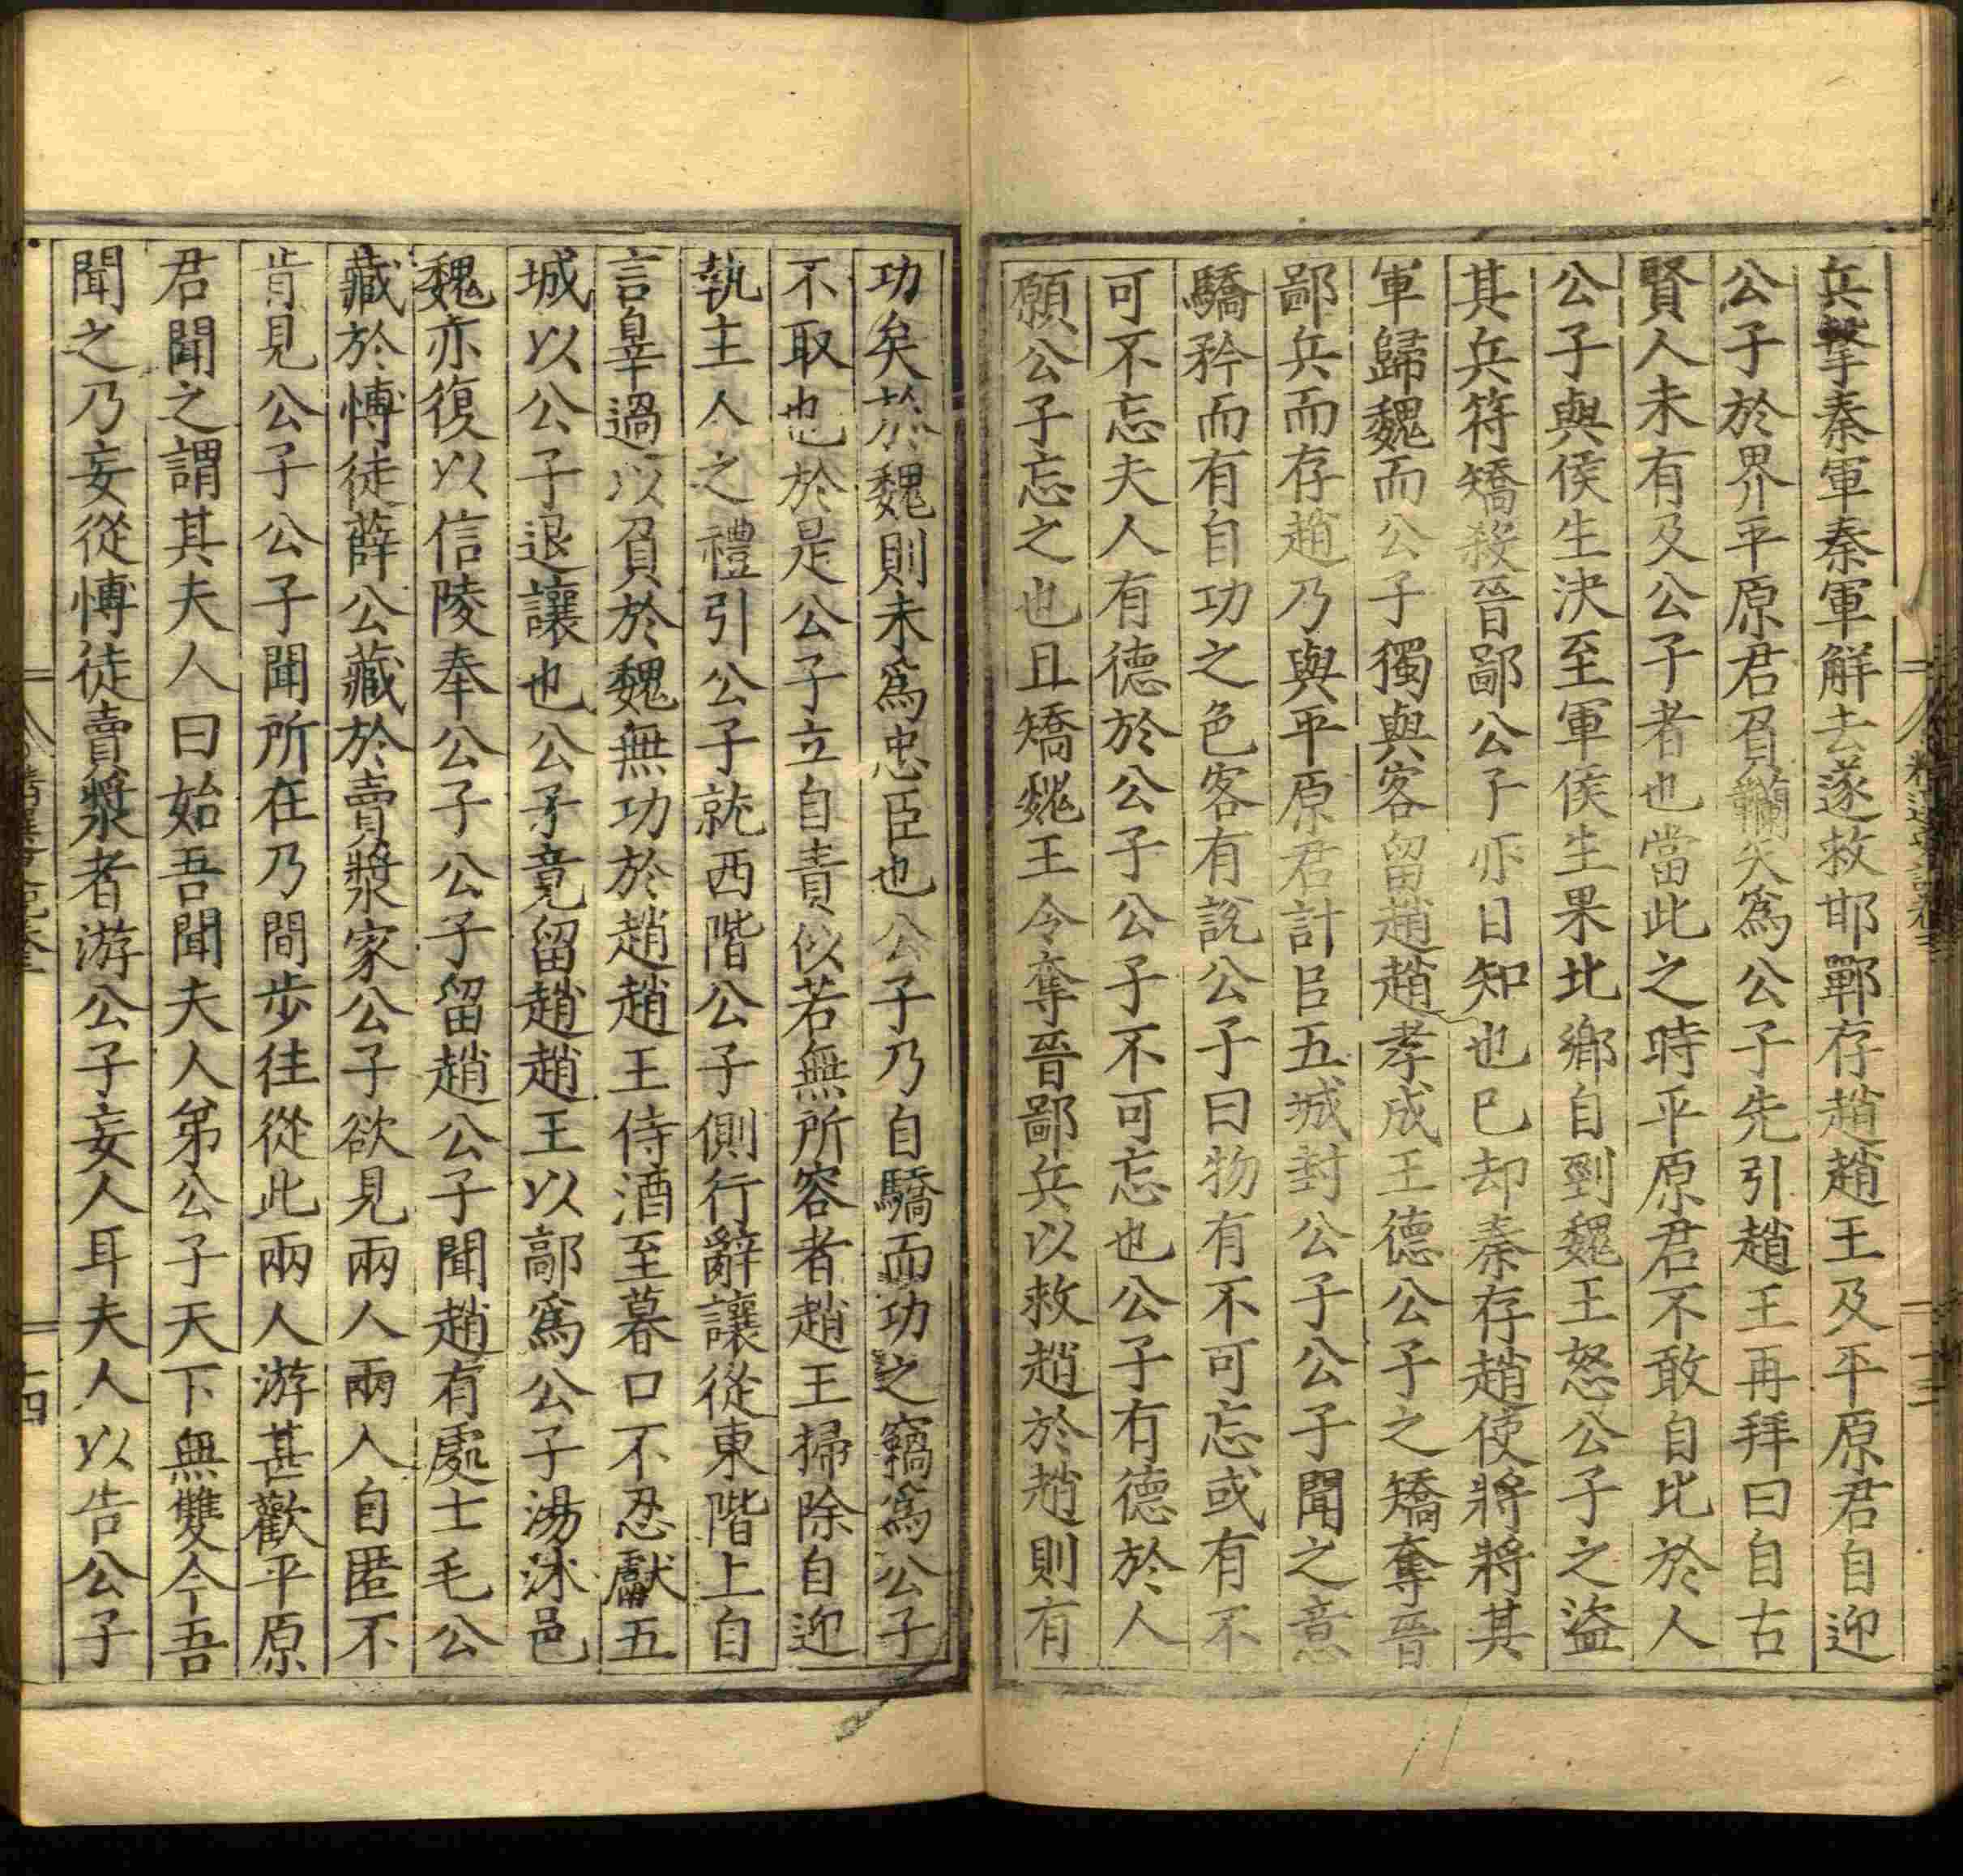 兵擊秦軍秦軍解去遂救邯鄲存趙趙王及平原君自迎
公子於界平原君負韊矢爲公子先引趙王再拜曰自古
賢人未有及公子者也當此之時平原君不敢自比於人
公子與侯生決至軍侯生果北鄉自剄魏王怒公子之盜
其兵符矯殺晉鄙公子亦日知也已却秦存趙使將將其
軍歸魏而公子獨與客留趙趙孝成王德公子之矯奪晉
鄙兵而存趙乃與平原君計㠯五城封公子公子聞之意
驕矜而有自功之色客有說公子曰物有不可忘或有不
可不忘夫人有德於公子公子不可忘也公子有德於人
願公子忘之也且矯魏王令奪晉鄙兵以救趙於趙則有
功矣於魏則未爲忠臣也公子乃自驕而功之竊爲公子
不取也於是公子立自責似若無所容者趙王掃除自迎
執主人之禮引公子就西階公子側行辭讓從東階上自
言辠過以負於魏無功於趙趙王侍酒至暮口不忍獻五
城以公子退讓也公子竟留趙趙王以鄗爲公子湯沐邑
魏亦復以信陵奉公子公子留趙公子聞趙有處士毛公
藏於愽徒薛公藏於賣漿家公子欲見兩人兩人自匿不
肯見公子公子聞所在乃間步往從此兩人游甚歡平原
君聞之謂其夫人曰始吾聞夫人弟公子天下無雙今吾
聞之乃妄從愽徒賣漿者游公子妄人耳夫人以告公子
十四